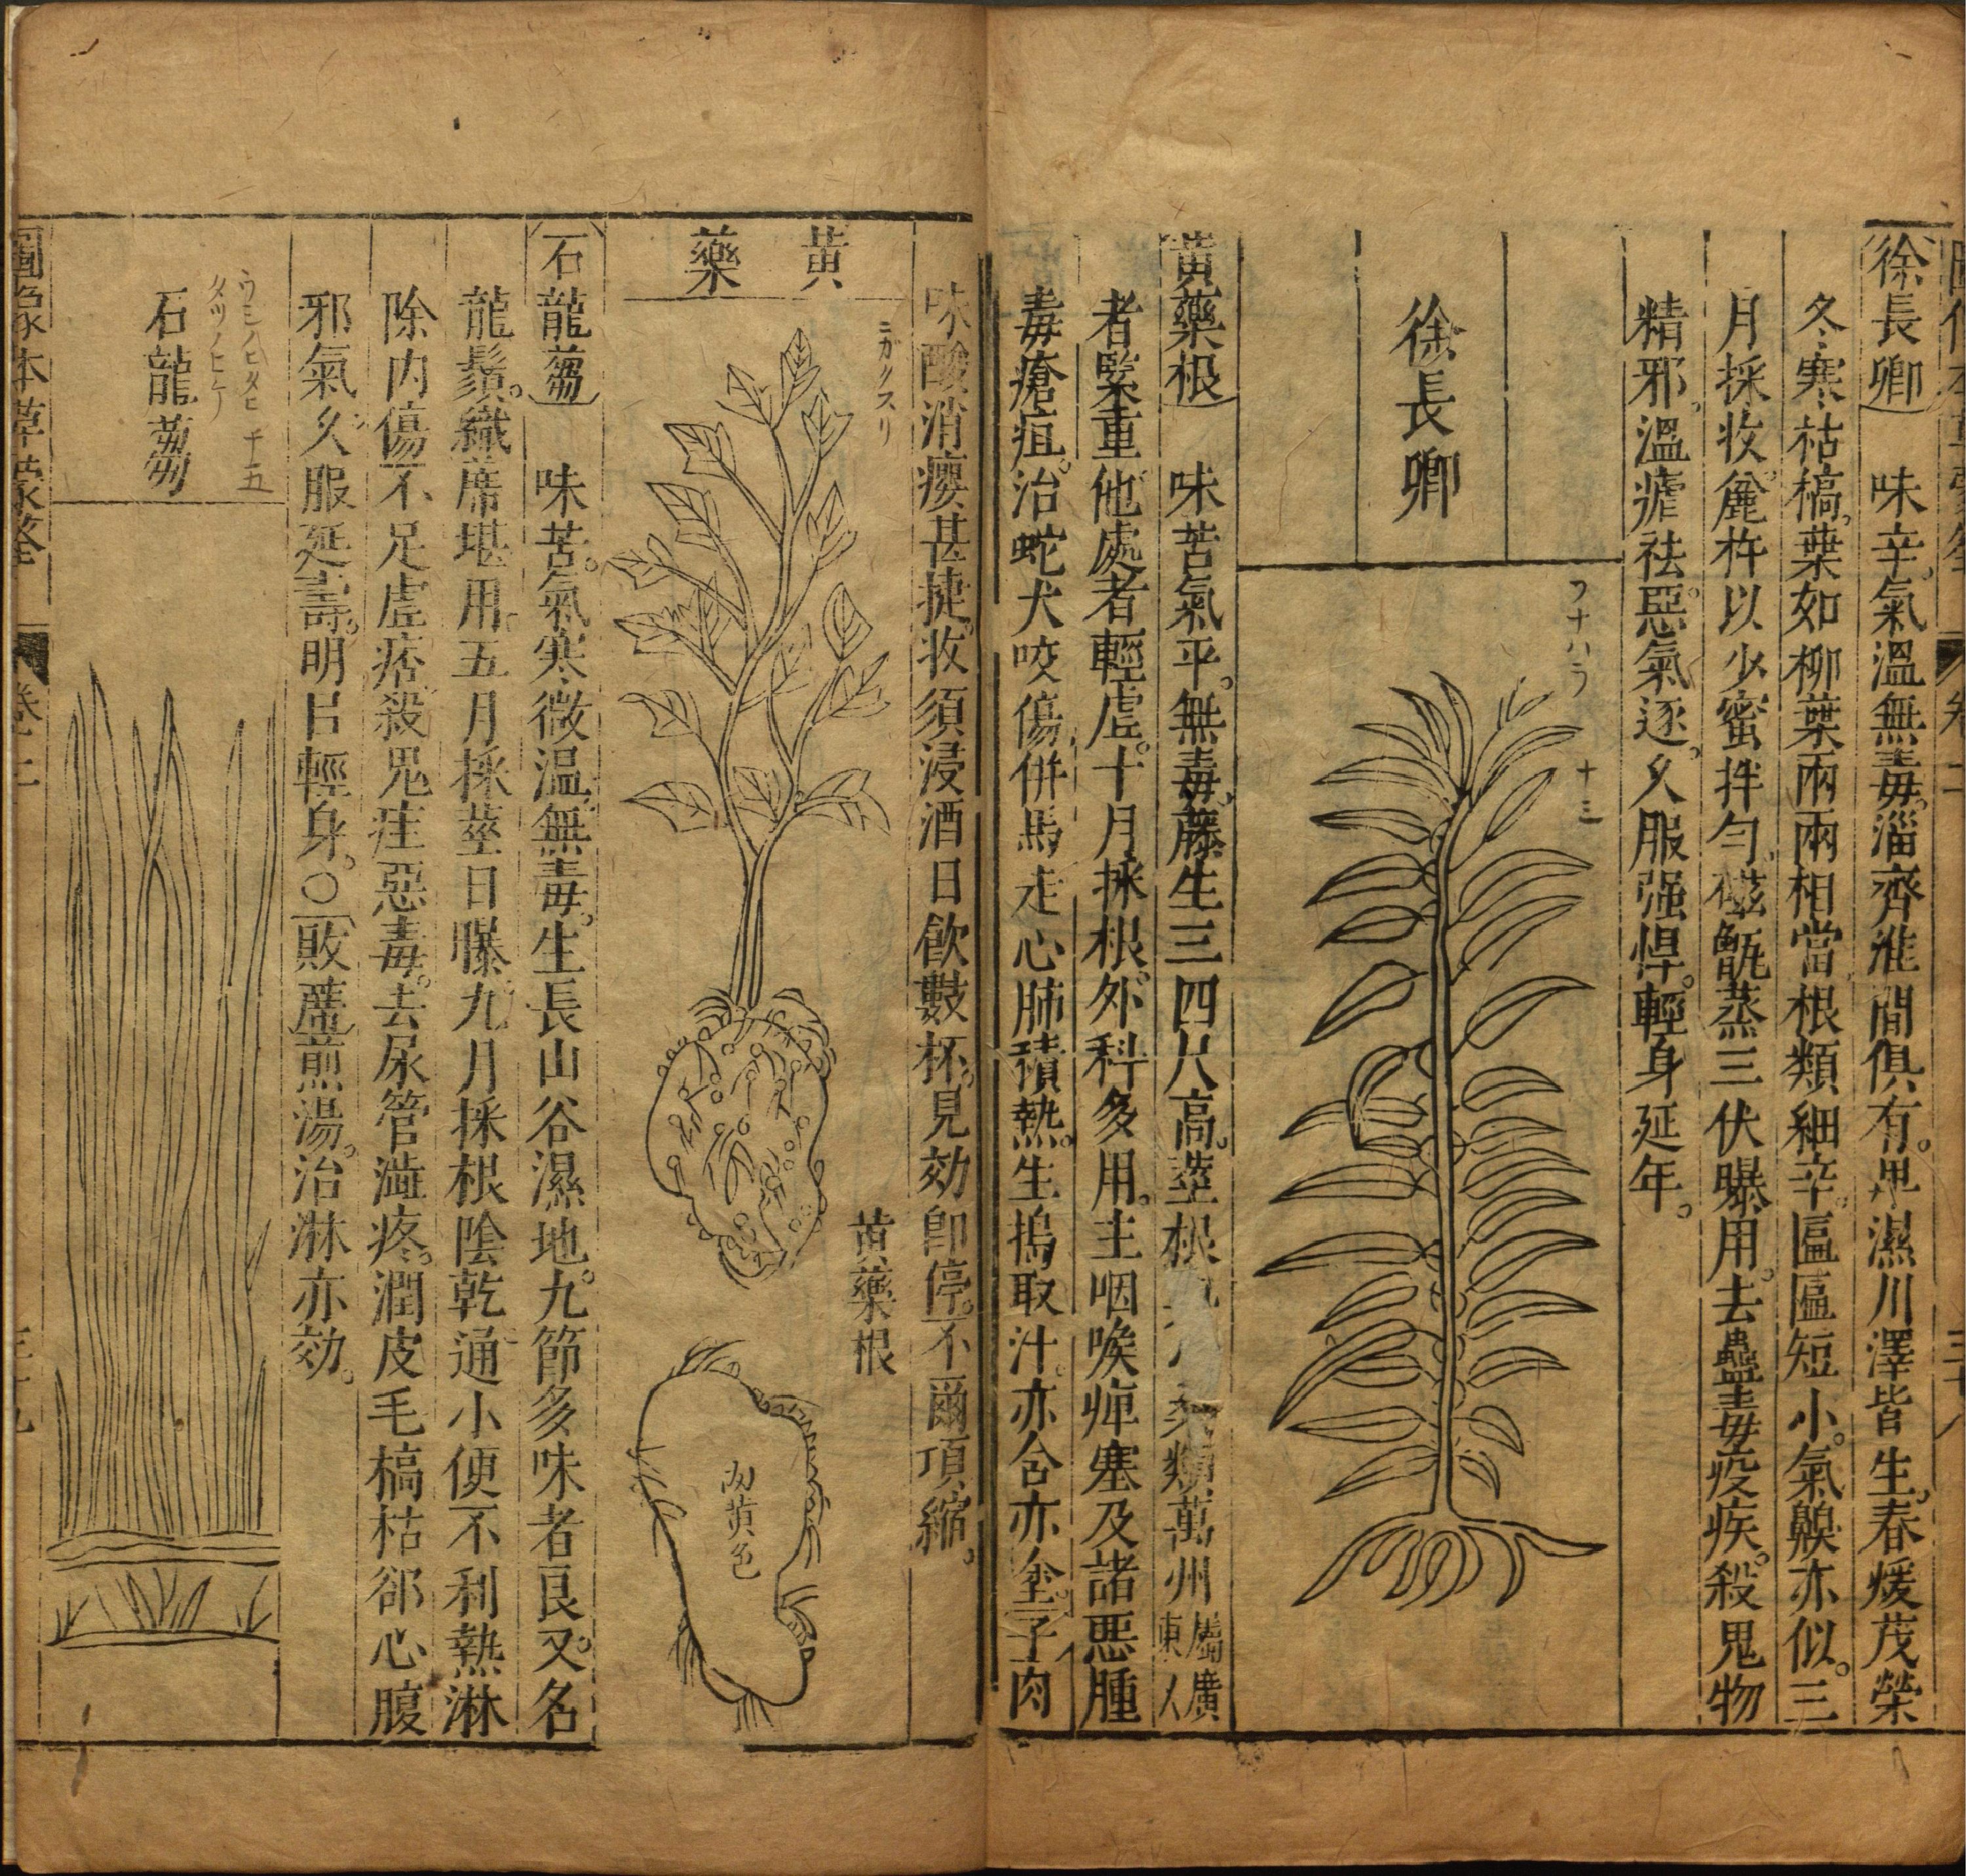 徐長卿　味辛。氣溫無毒。淄齊淮間俱有。卑濕川澤皆生。春煖茂榮
冬寒枯槁。葉如柳葉兩兩相當。根類細辛。區區短小。氣䑕亦似。三
月採收。麄杵以少蜜拌勻。磁甌蒸三伏曝用。去蠱毒疫疾。殺鬼物
精邪。溫瘧祛。惡氣逐。久服强悍。輕身延年。
徐長卿
フナハラ
十三
黃藥根　味苦氣平。無毒。藤生三四尺高。莖根
類萬州屬廣東人
者緊重他處者輕虛。十月採根。外科多用。主咽喉痺塞及諸惡腫
毒瘡疽。治蛇犬咬傷。併馬走心肺積熱。生搗取汁。亦含亦塗。子肉
味酸消癭甚捷。收須浸酒日飲數杯。見効即停。不爾項縮。
黃藥
ニガクスリ
黃藥根
內黃色
石龍蒭　味苦。氣寒微溫。無毒。生長山谷濕地。九節多味者良。又名
龍鬚。織蓆堪用。五月採莖日曝。九月採根陰乾通小便不利熱淋
除內傷不足虛痞。殺鬼疰惡毒。去尿管澁疼。潤皮毛槁枯。郤心腹
邪氣。久服延壽。明目輕身。○敗蓆煎湯。治淋亦効。
石龍蒭
圖像本草蒙筌